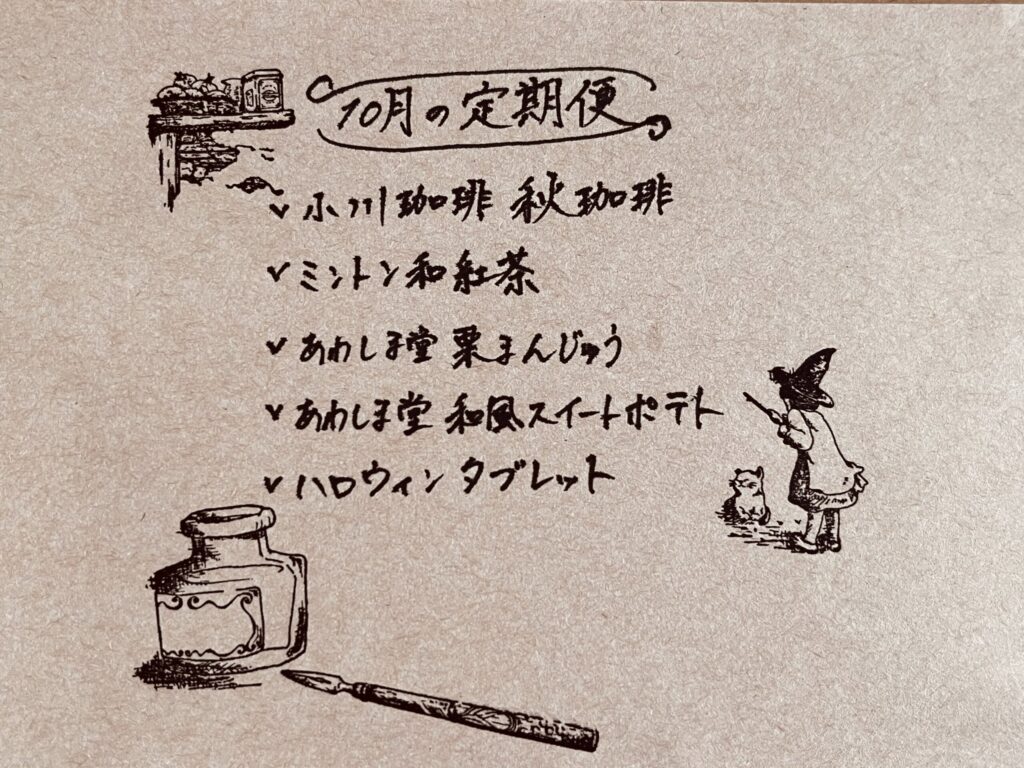 10月の定期便
✓ 小川珈琲 秋珈琲
✓ ミントン和紅茶
✓ あわしま堂 栗まんじゅう
✓ あわしま堂 和風スイートポテト
✓ ハロウィンタブレット